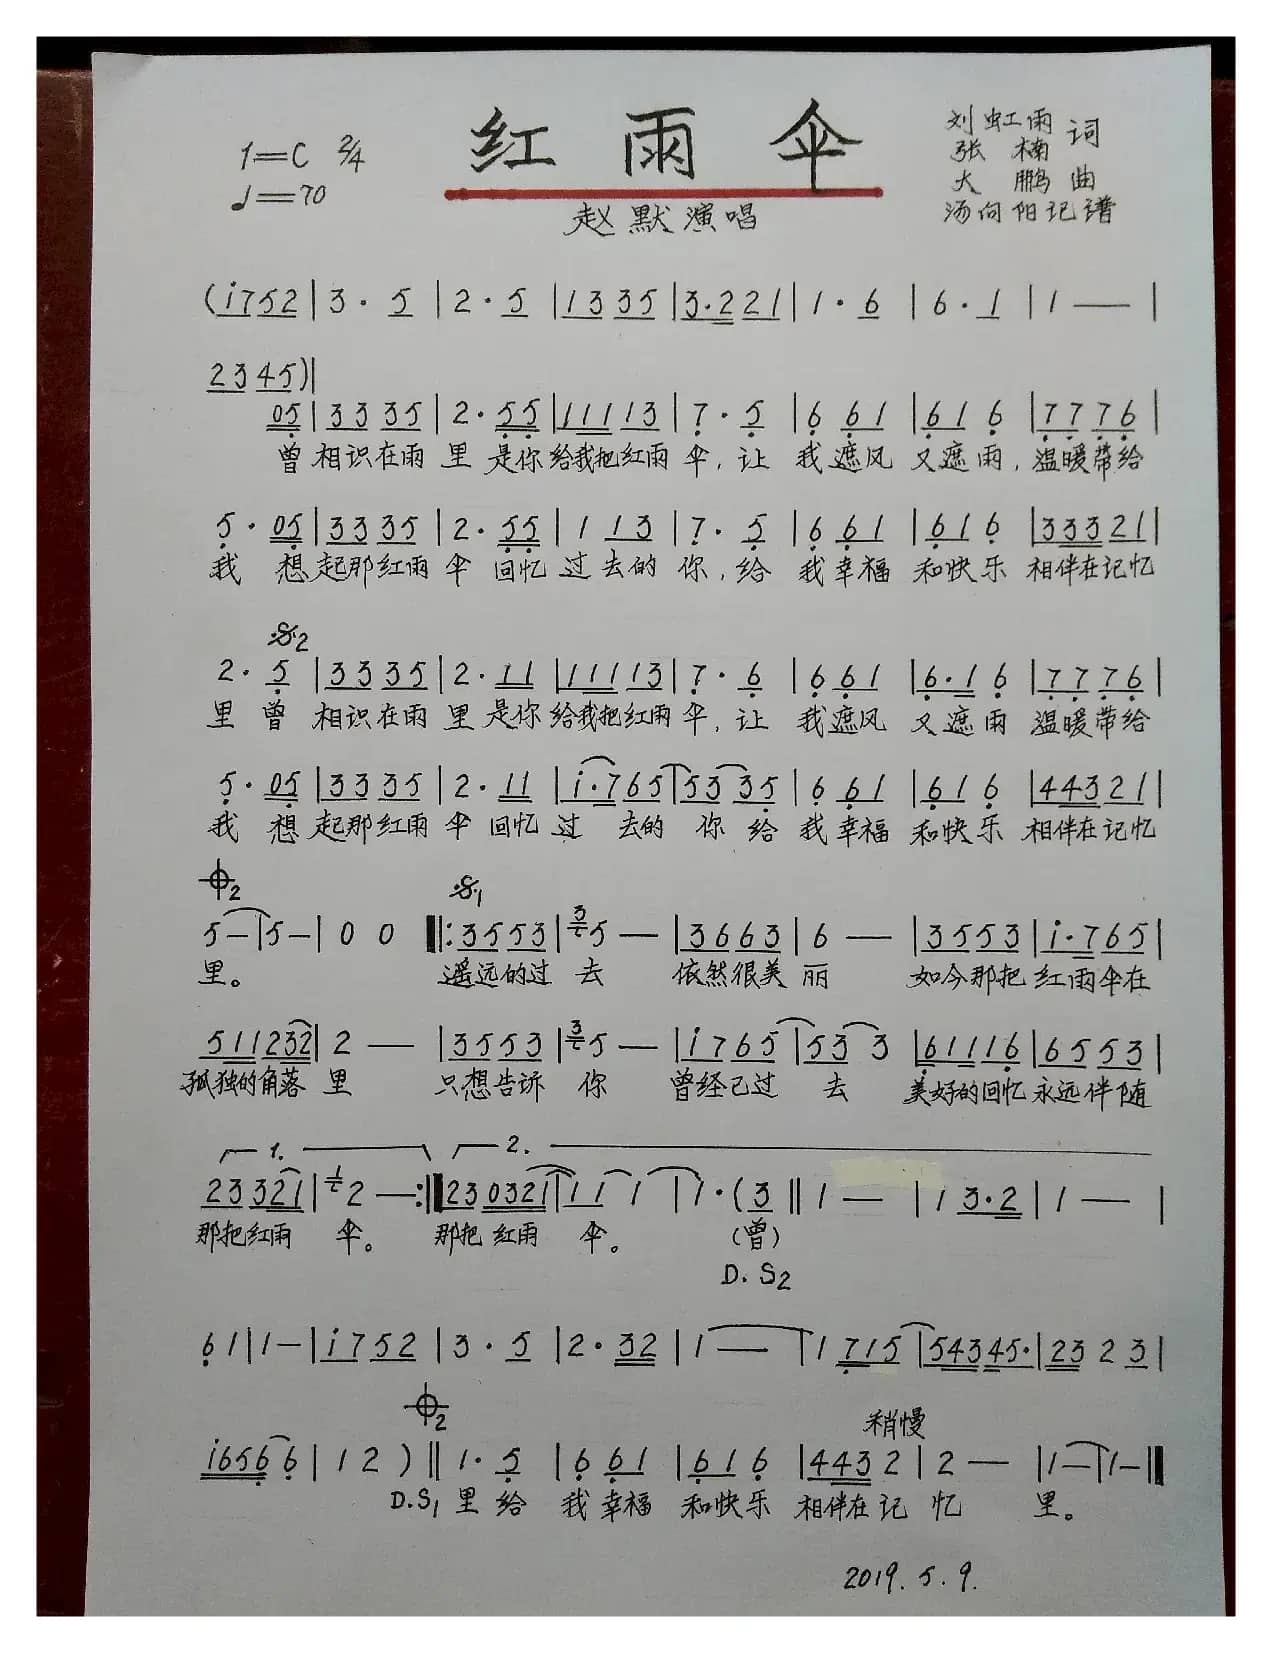 红雨伞
1=C 2/4
♩=70
刘虹雨
张楠 词
大鹏曲
汤向阳记谱
赵默演唱
(i752|3·5|2·5|1335|3·221|1·6|6·1|1—|
2345)|
05|3335|2·55|11113|7·5|661|616|7776|
曾相识在雨里是你给我把红雨伞,让我遮风又遮雨,温暖带给
5·05|3335|2·55|113|7·5|661|616|33321|
我想起那红雨伞回忆过去的你,给我幸福和快乐相伴在记忆
𝄋2
2·5|3335|2·11|11113|7·6|661|6·16|7776|
里曾相识在雨里是你给我把红雨伞,让我遮风又遮雨温暖带给
5·05|3335|2·11|i·765|5335|661|616|44321|
我想起那红雨伞回忆过去的你给我幸福和快乐相伴在记忆
𝄌2 𝄋1
5—|5—|00‖:3553|35—|3663|6—|3553|i·765|
里。遥远的过去依然很美丽如今那把红雨伞在
511232|2—|3553|35—|i765|533|61116|6553|
孤独的角落里只想告诉你曾经已过去美好的回忆永远伴随
1. 2.
23321|12—:‖230321|111|1·(3‖1—|13·2|1—|
那把红雨伞。那把红雨伞。(曾)
D.S2
61|1—|i752|3·5|2·32|1—|1715|54345·|2323|
𝄌2 稍慢
i6566|12)‖1·5|661|616|4432|2—|1—|1—‖
D.S1里给我幸福和快乐相伴在记忆里。
2019.5.9.